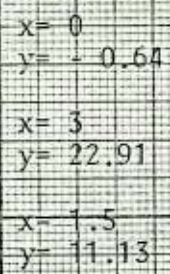 x= 0
y= - 0.64
x= 3
y= 22.91
x= 1.5
y= 11.13